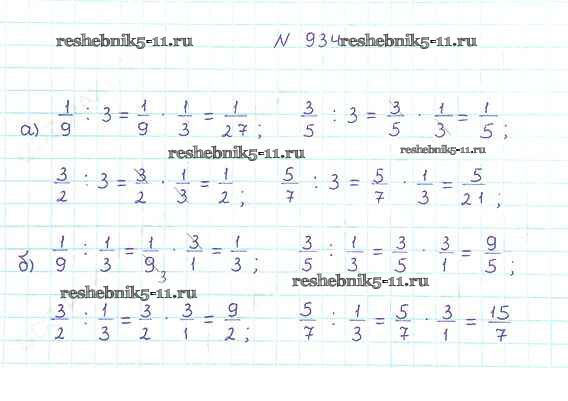 reshebnik5-11.ru № 934 reshebnik5-11.ru
а) 1/9 : 3 = 1/9 · 1/3 = 1/27; 3/5 : 3 = 3/5 · 1/3 = 1/5;
reshebnik5-11.ru reshebnik5-11.ru
3/2 : 3 = 3/2 · 1/3 = 1/2; 5/7 : 3 = 5/7 · 1/3 = 5/21;
б) 1/9 : 1/3 = 1/9 3 · 3/1 = 1/3; 3/5 : 1/3 = 3/5 · 3/1 = 9/5;
reshebnik5-11.ru reshebnik5-11.ru
3/2 : 1/3 = 3/2 · 3/1 = 9/2; 5/7 : 1/3 = 5/7 · 3/1 = 15/7